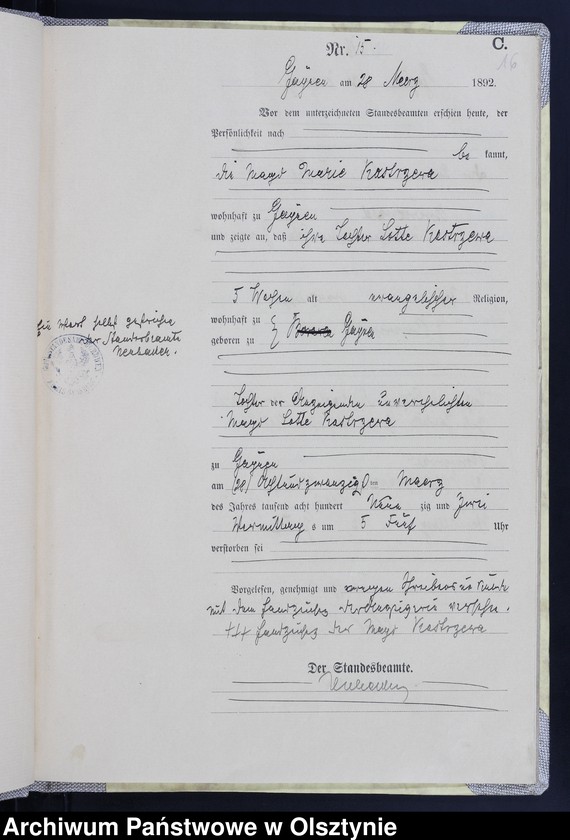 Nr. 15.
C.
16
Gayren am 28 Maerz 1892.
Vor dem unterzeichneten Standesbeamten erschien heute, der
Persönlichkeit nach
be kannt,
die Magd Marie Kastrzewa
wohnhaft zu Gayren
und zeigte an, daß ihre Tochter Lotte Kastrzewa
5 Wochen alt evangelischer Religion,
wohnhaft zu
geboren zu Gayren
Ein Wort selbst gestrichen
der Standesbeamte
Tochter der Anzeigenden unverehelichten
Magd Lotte Kastrzewa
zu Gayren
am (28) Achtundzwanzig ten Maerz
des Jahres tausend acht hundert Neun zig und Zwei
Vormittag s um 5 Fünf Uhr
verstorben sei
Vorgelesen, genehmigt und wegen Schreibensunkunde
mit dem Handzeichen der versehn.
+++ Handzeichen der Magd Kastrzewa
Der Standesbeamte.
Archiwum Państwowe w Olsztynie